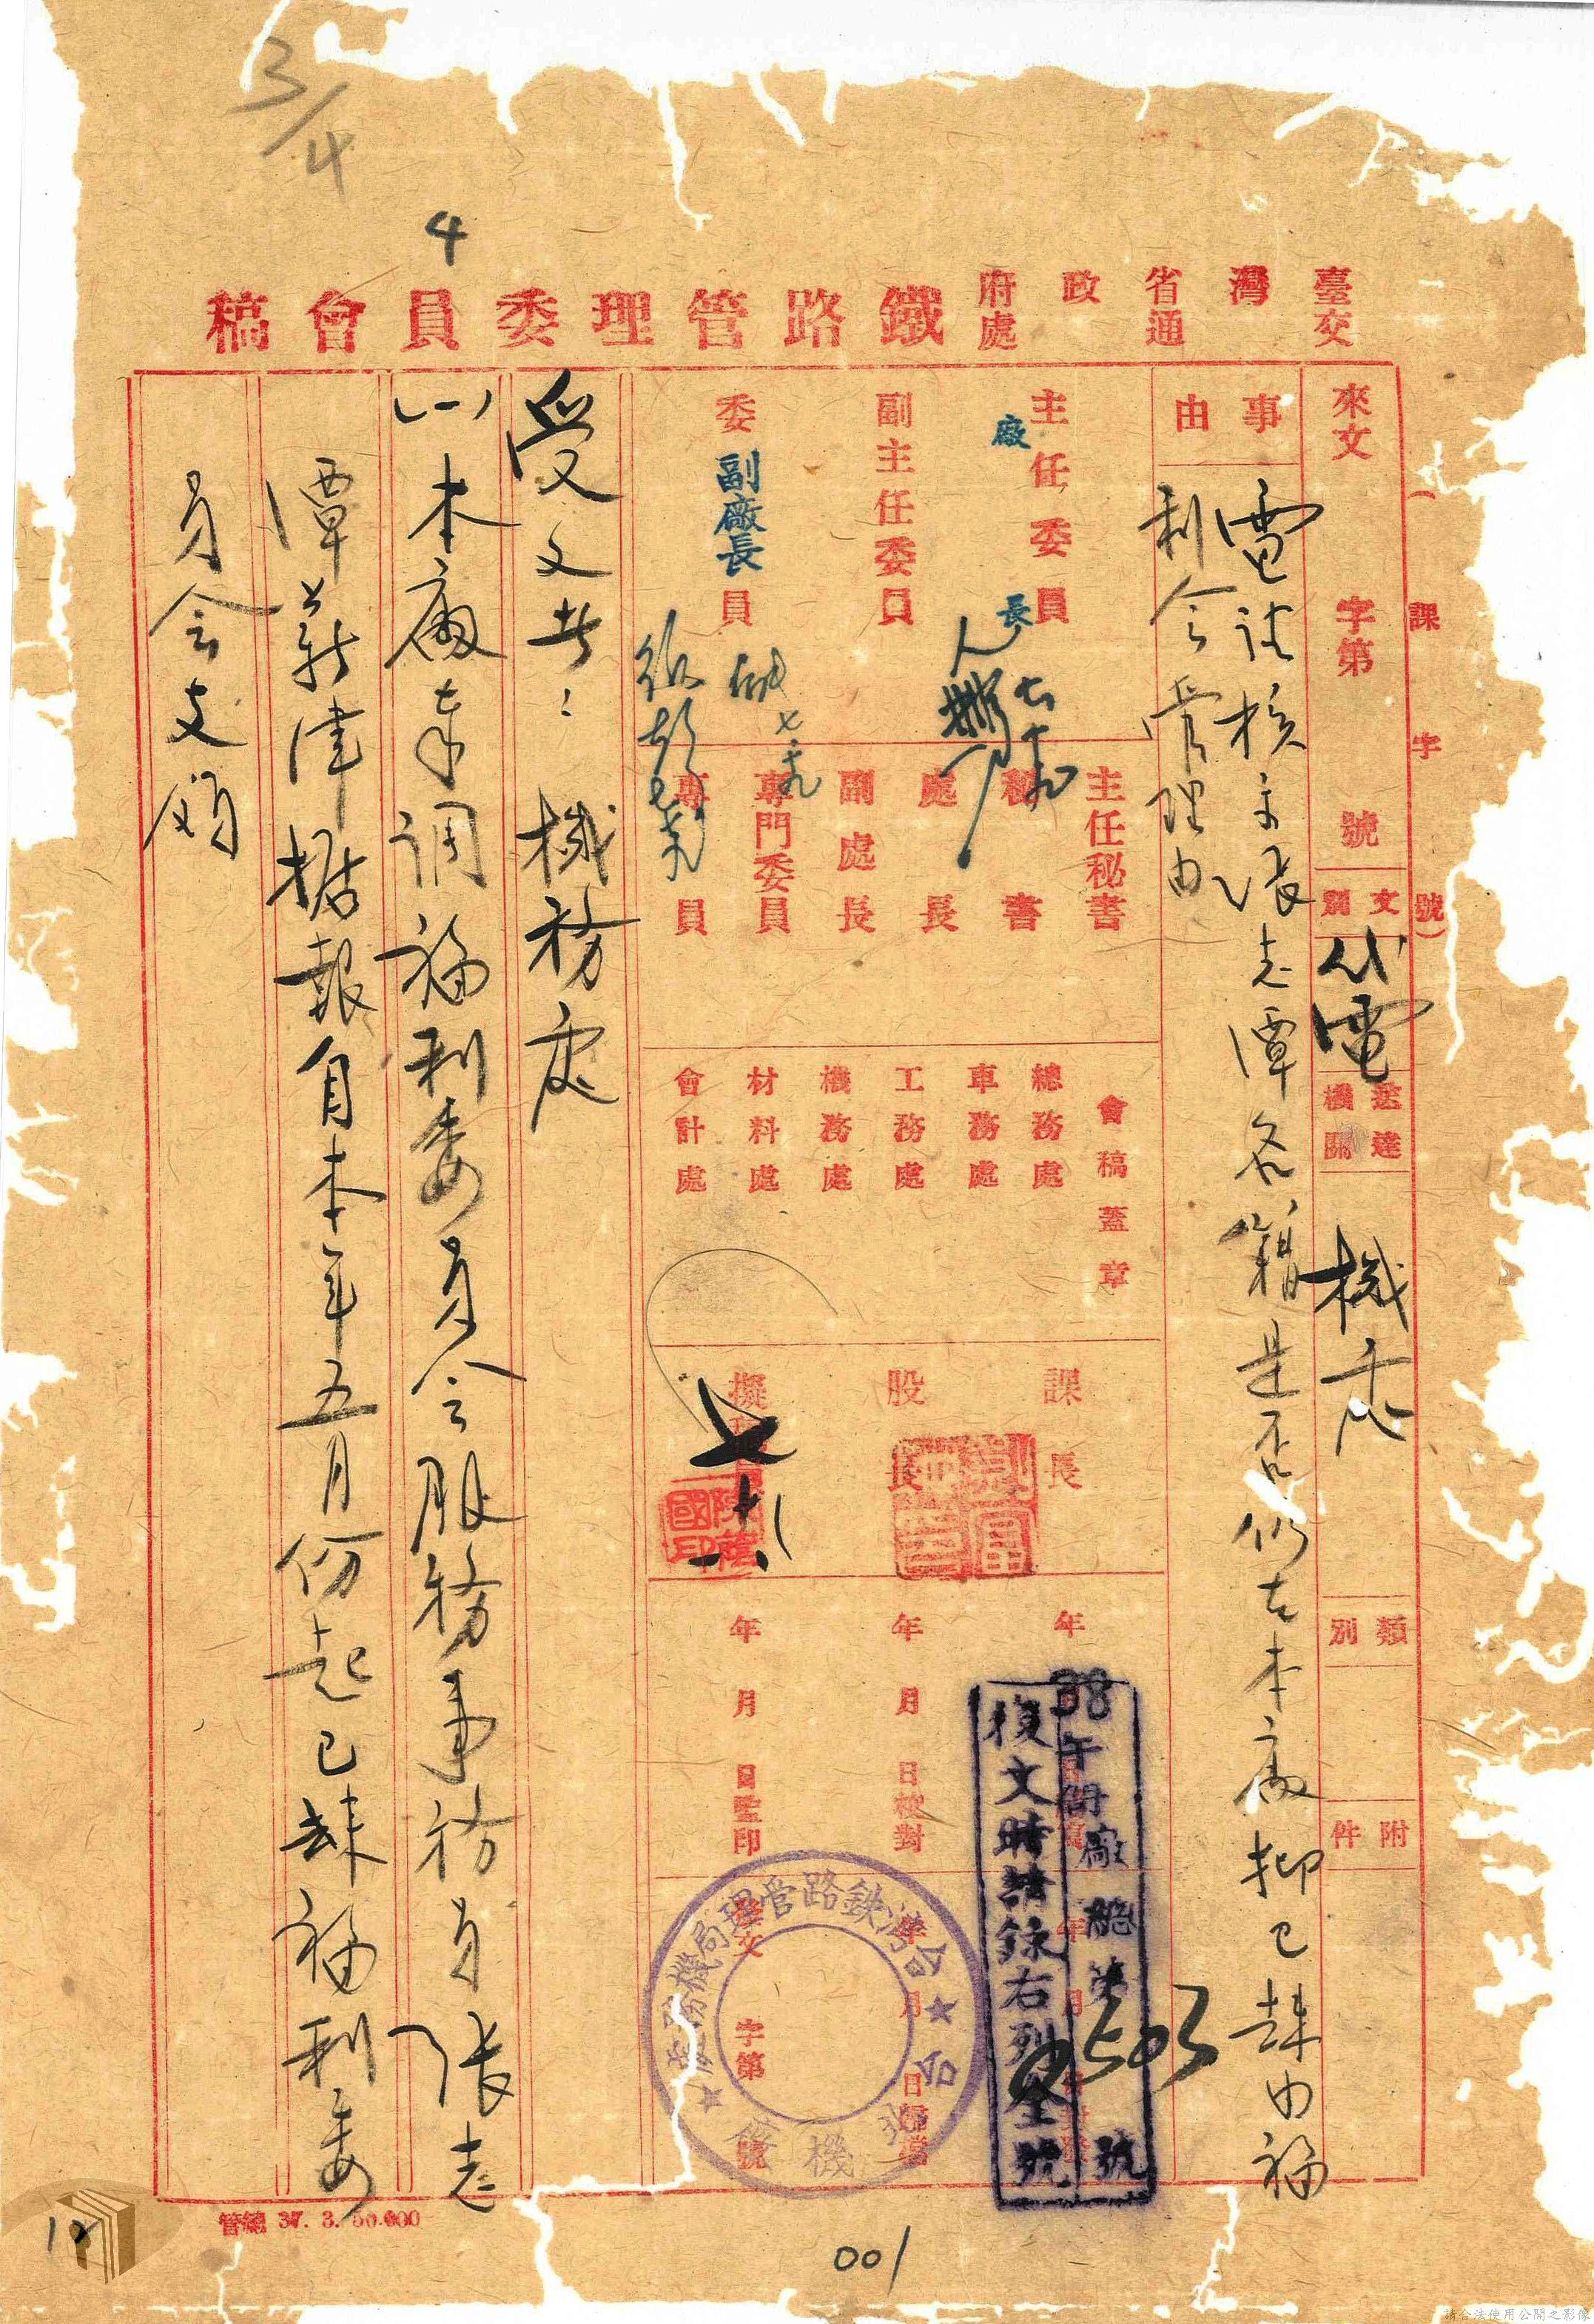 3/4
4
臺灣省政府
交通處
鐵路管理委員會稿
(課字號)
來文 字第 號
文別 代電
送達機關 機處
類別
附件
事由
電請核示張志潭名籍是否仍在本廠抑已隸由福
利会管理由
主任委員
廠長
副主任委員
委員
副廠長
主任秘書
秘書
處長
副處長
專門委員
專員
會稿蓋章
總務處
車務處
工務處
機務處
材料處
會計處
課長
股長
年月日校對
年月日監印
字第 號
38年 廠 第 號
0503
復文時請錄右列全號
台灣鉄路管理局機務處
台北機廠
受文者：機務處
(一)本廠奉调福利委員会服務事務員張志
潭薪津据報自本年五月份起已隸福利委
員会支領
管總 37. 3. 50.000
001
請合法使用公開之影像